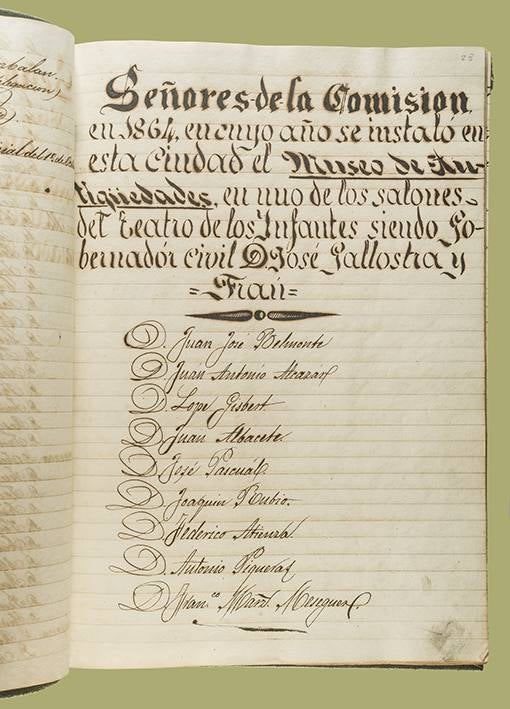 abalan.
28
Señores de la Comision
en 1864, en cuyo año se instaló en
esta Ciudad el Museo de An-
tigüedades, en uno de los salones
del Teatro de los Infantes siendo Go-
bernador civil D. José Gallostra y
=Frau=
D. Juan José Belmonte
D. Juan Antonio Alcazar
D. Lope Gisbert
D. Juan Albacete
D. José Pascuál
D. Joaquin Rubio
D. Federico Atienza
D. Antonio Piqueras
D. Fran.co Marz. Meseguer